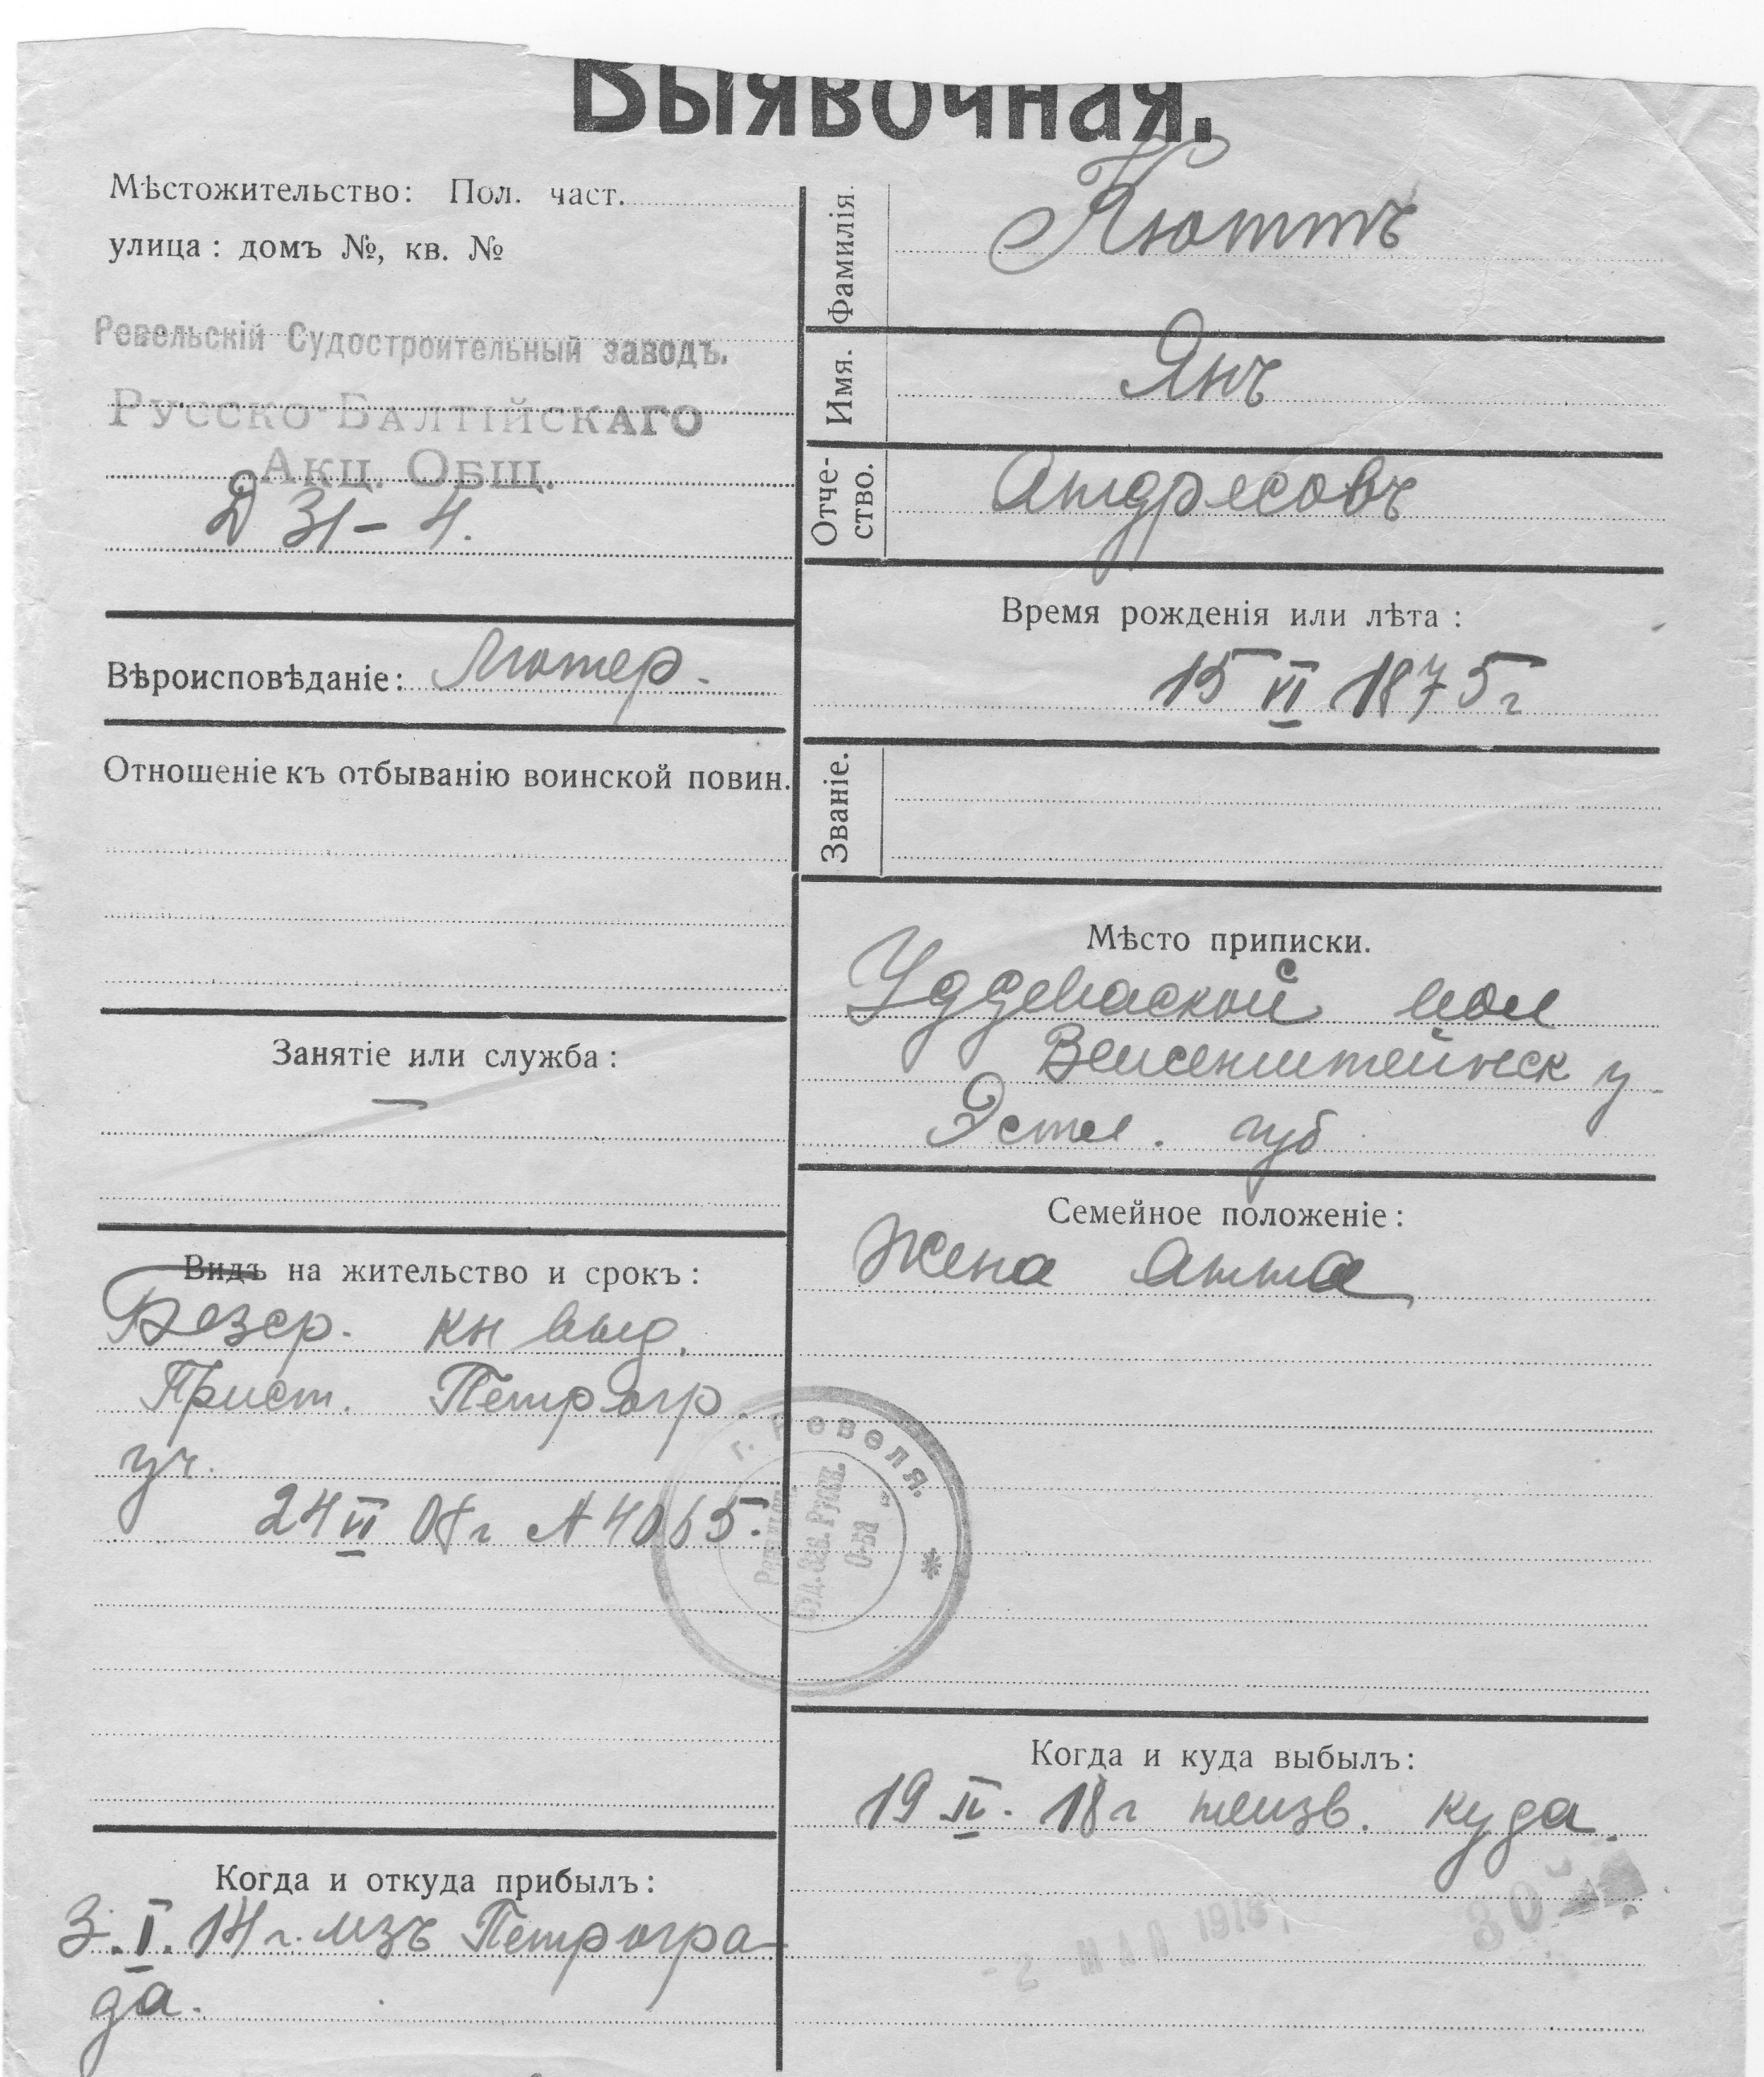 Выявочная.
Мѣстожительство: Пол. част.
улица: домъ №, кв. №
Ревельскій Судостроительный заводъ.
Русско-Балтійскаго
Акц. Общ.
Д 31 – 4.
Вѣроисповѣданіе: Лютер.
Отношеніе къ отбыванію воинской повин.
Занятіе или служба:
—
Видъ на жительство и срокъ:
Безср. кн выд.
Прист. Петрогр.
уч.
24 VI 08 г № 4065.
Когда и откуда прибылъ:
3. I. 14 г. изъ Петрогра-
да.
Фамилія.
Кюттъ
Имя.
Янъ
Отче-
ство.
Андресовъ
Время рожденія или лѣта:
15 VI 1875 г
Званіе.
Мѣсто приписки.
Уддеваской вол
Вейсенштейнск у
Эстл. губ
Семейное положеніе:
Жена Анна
г. Ревеля.
О-ва
Когда и куда выбылъ:
19 II. 18 г неизв. куда.
- 2 МАЯ 1918